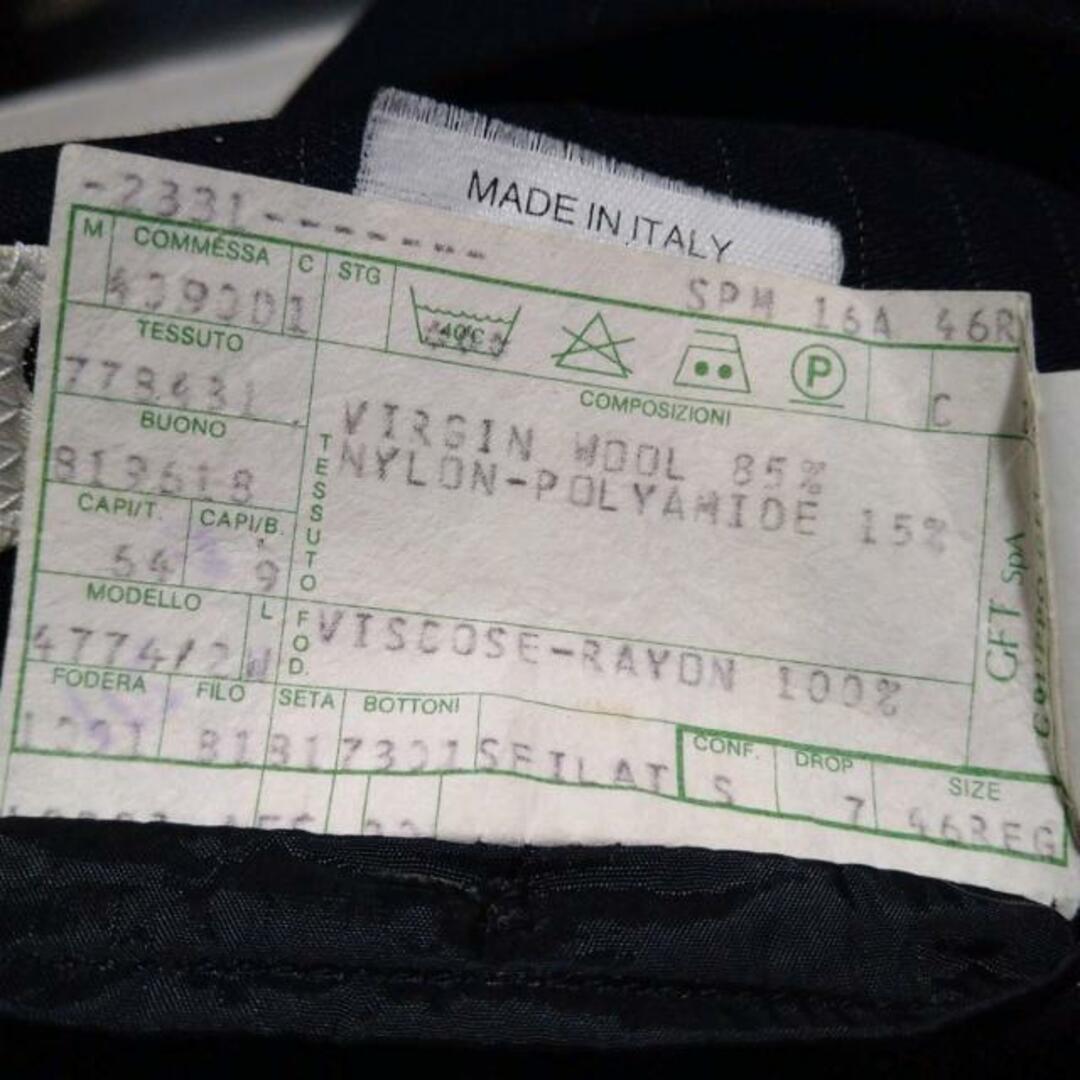 MADE IN ITALY
-2331-------
SPM 16A 46R
M COMMESSA C STG
439301
40°C
P
TESSUTO
778431
COMPOSIZIONI
C
BUONO
819618
TESSUTO
VIRGIN WOOL 85%
NYLON-POLYAMIDE 15%
CAPI/T. CAPI/B.
54 9
MODELLO L
4774/2 W
FOD.
VISCOSE-RAYON 100%
GFT SpA
FODERA FILO SETA BOTTONI
1391 818 317301 SFILAT
CONF. DROP SIZE
S 7 46REG